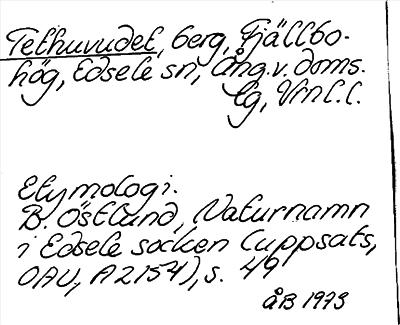 Tethuvudet, berg, Fjällbo-
hög, Edsele sn, Ång.v. doms.
lg, Vrnl.l.
Etymologi.
B. Östlund, Naturnamn
i Edsele socken (uppsats,
OAU, A2154), s. 49
åB 1973